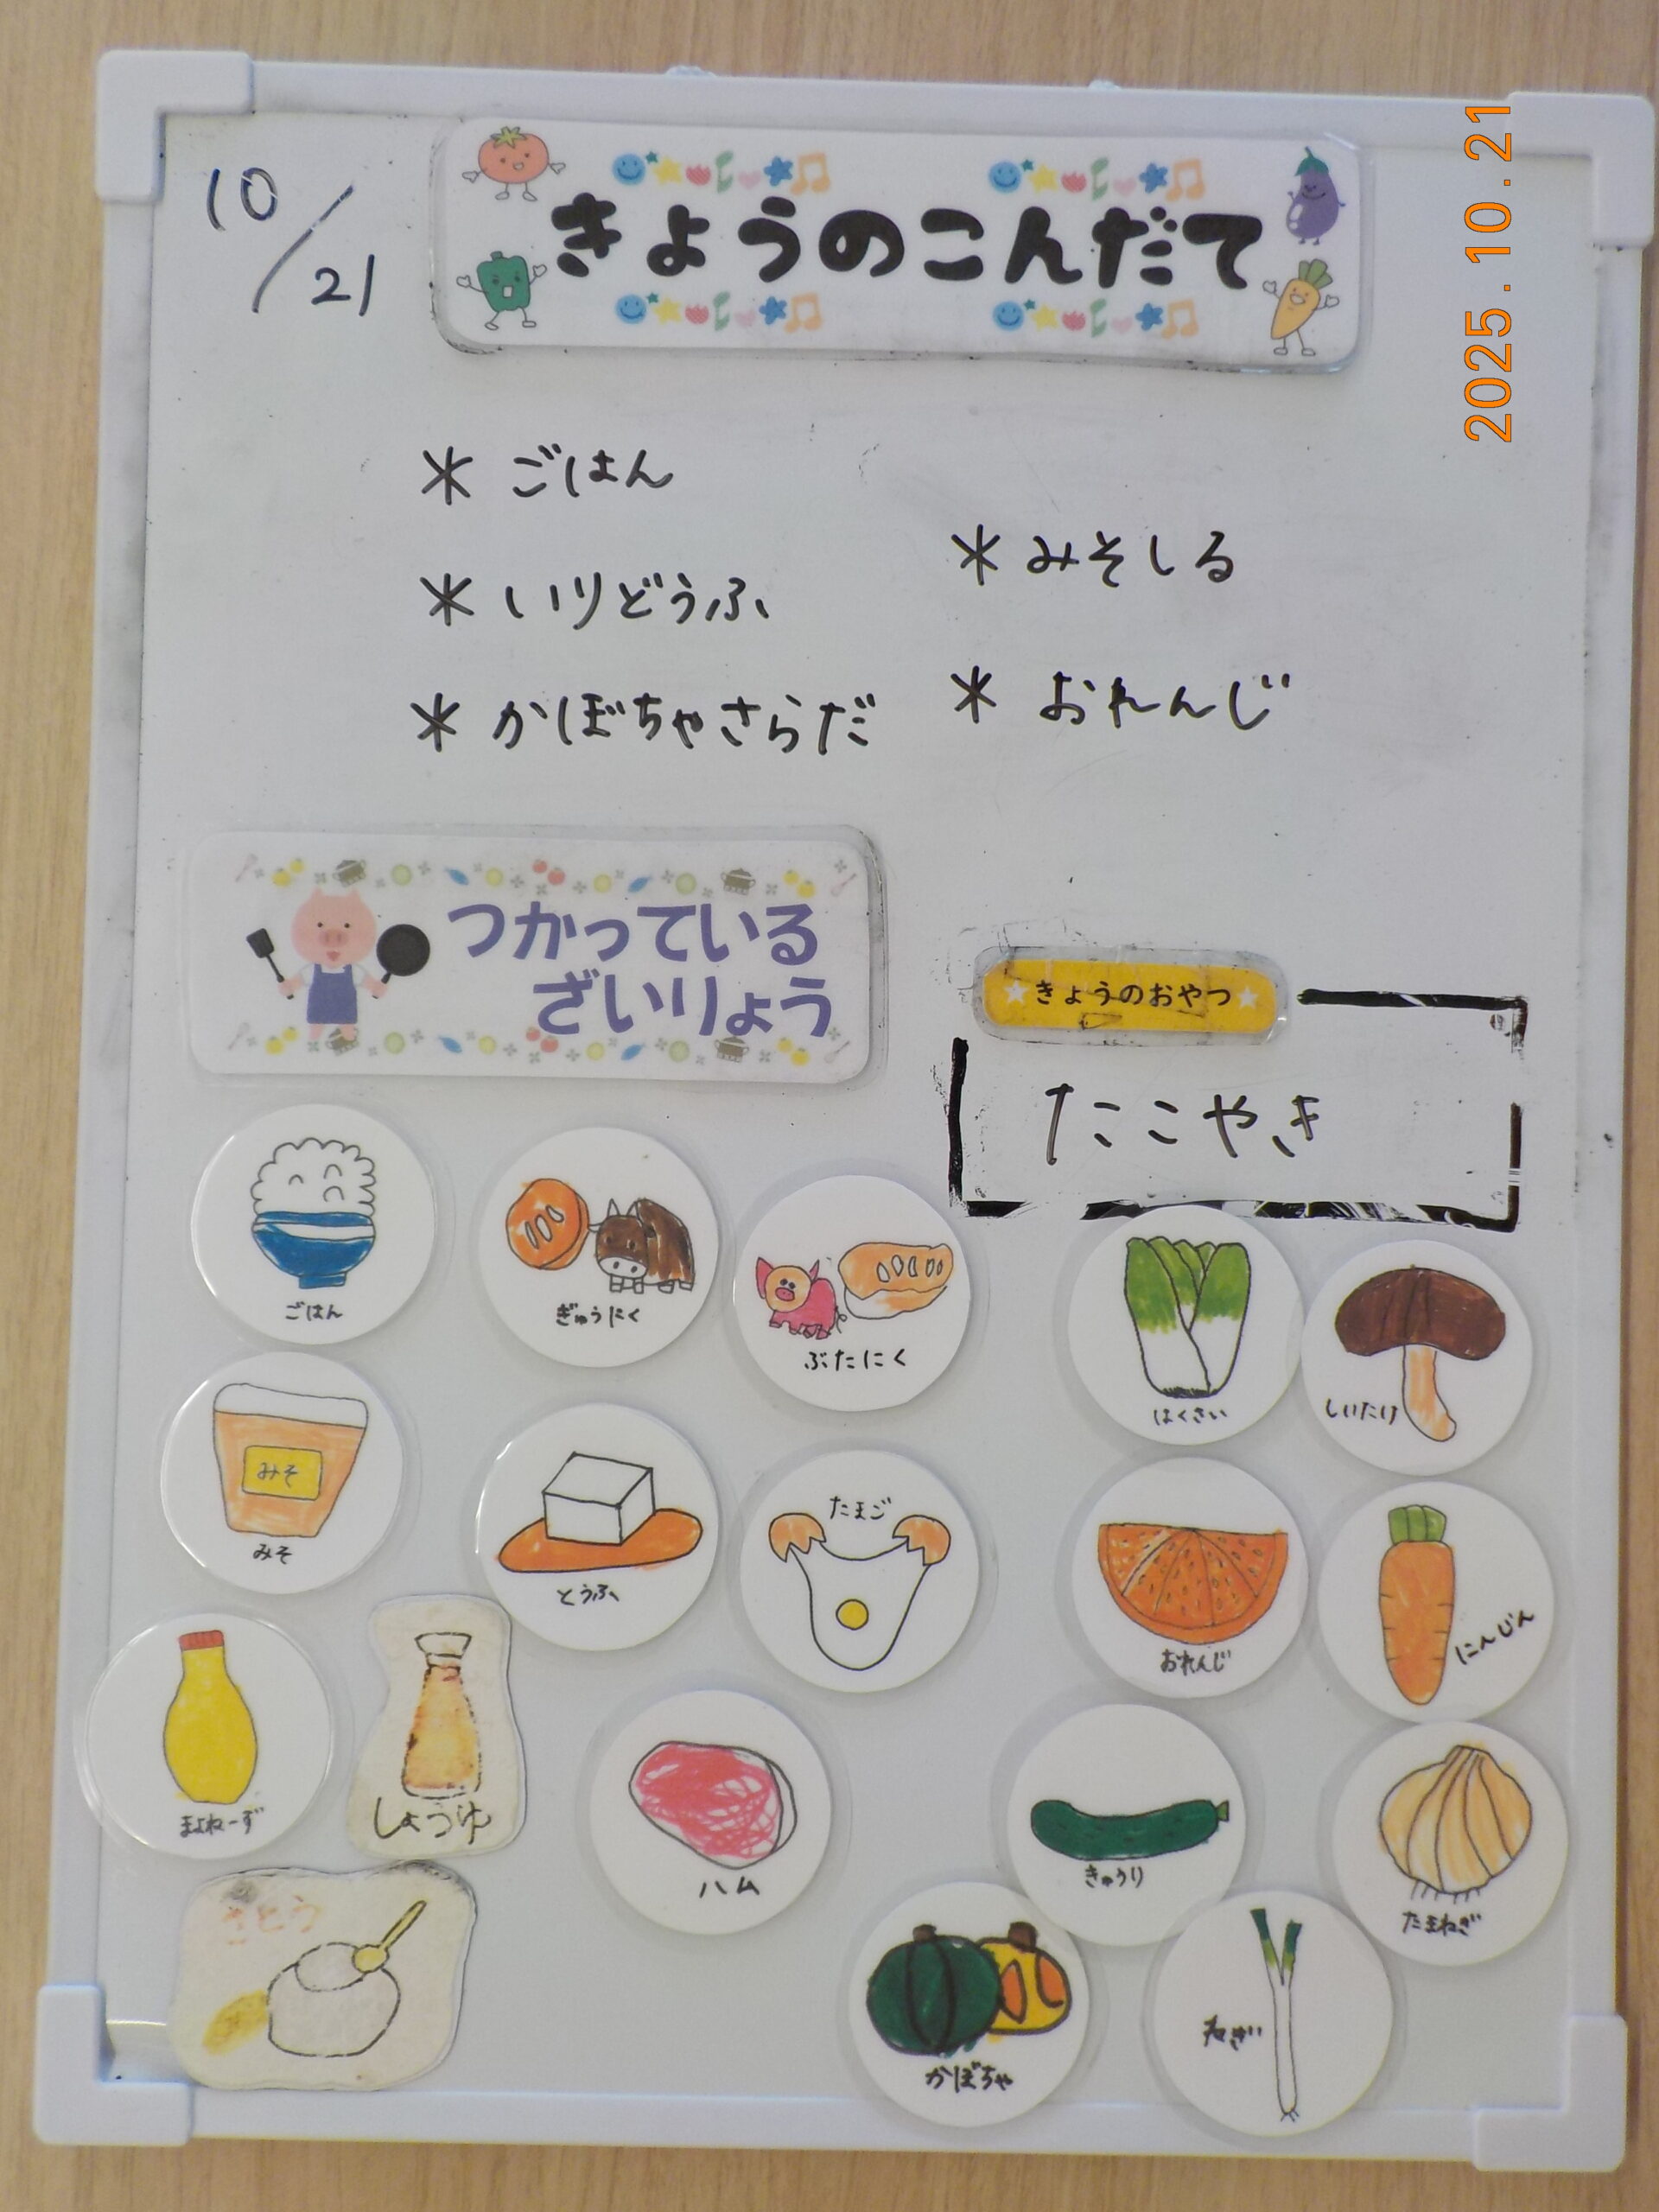 10/21
きょうのこんだて
2025.10.21
* ごはん
* いりどうふ
* かぼちゃさらだ
* みそしる
* おれんじ
つかっている
ざいりょう
きょうのおやつ
たこやき
ごはん
ぎゅうにく
ぶたにく
はくさい
しいたけ
みそ
みそ
とうふ
たまご
おれんじ
にんじん
まよねーず
しょうゆ
ハム
きゅうり
たまねぎ
さとう
かぼちゃ
ねぎ